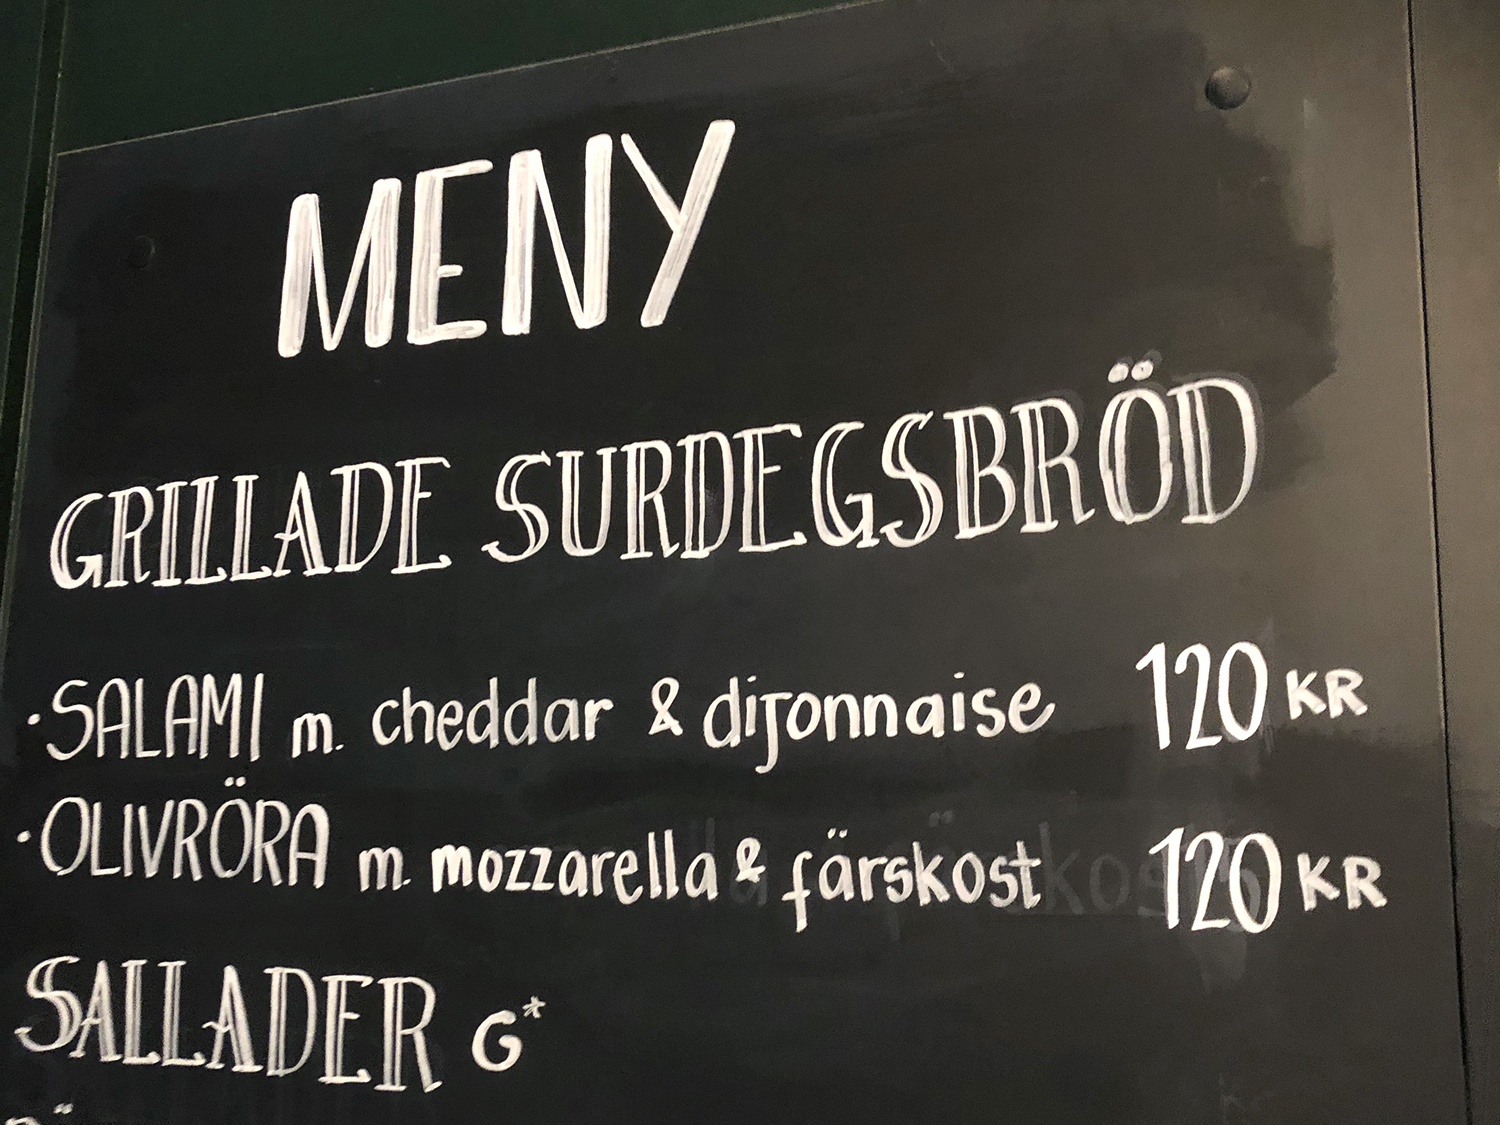 MENY
GRILLADE SURDEGSBRÖD
·SALAMI m. cheddar & dijonnaise 120 KR
·OLIVRÖRA m. mozzarella & färskost 120 KR
SALLADER G*